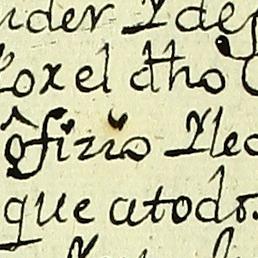 nder Y de
por el dho
ofizio Y le
que a todos